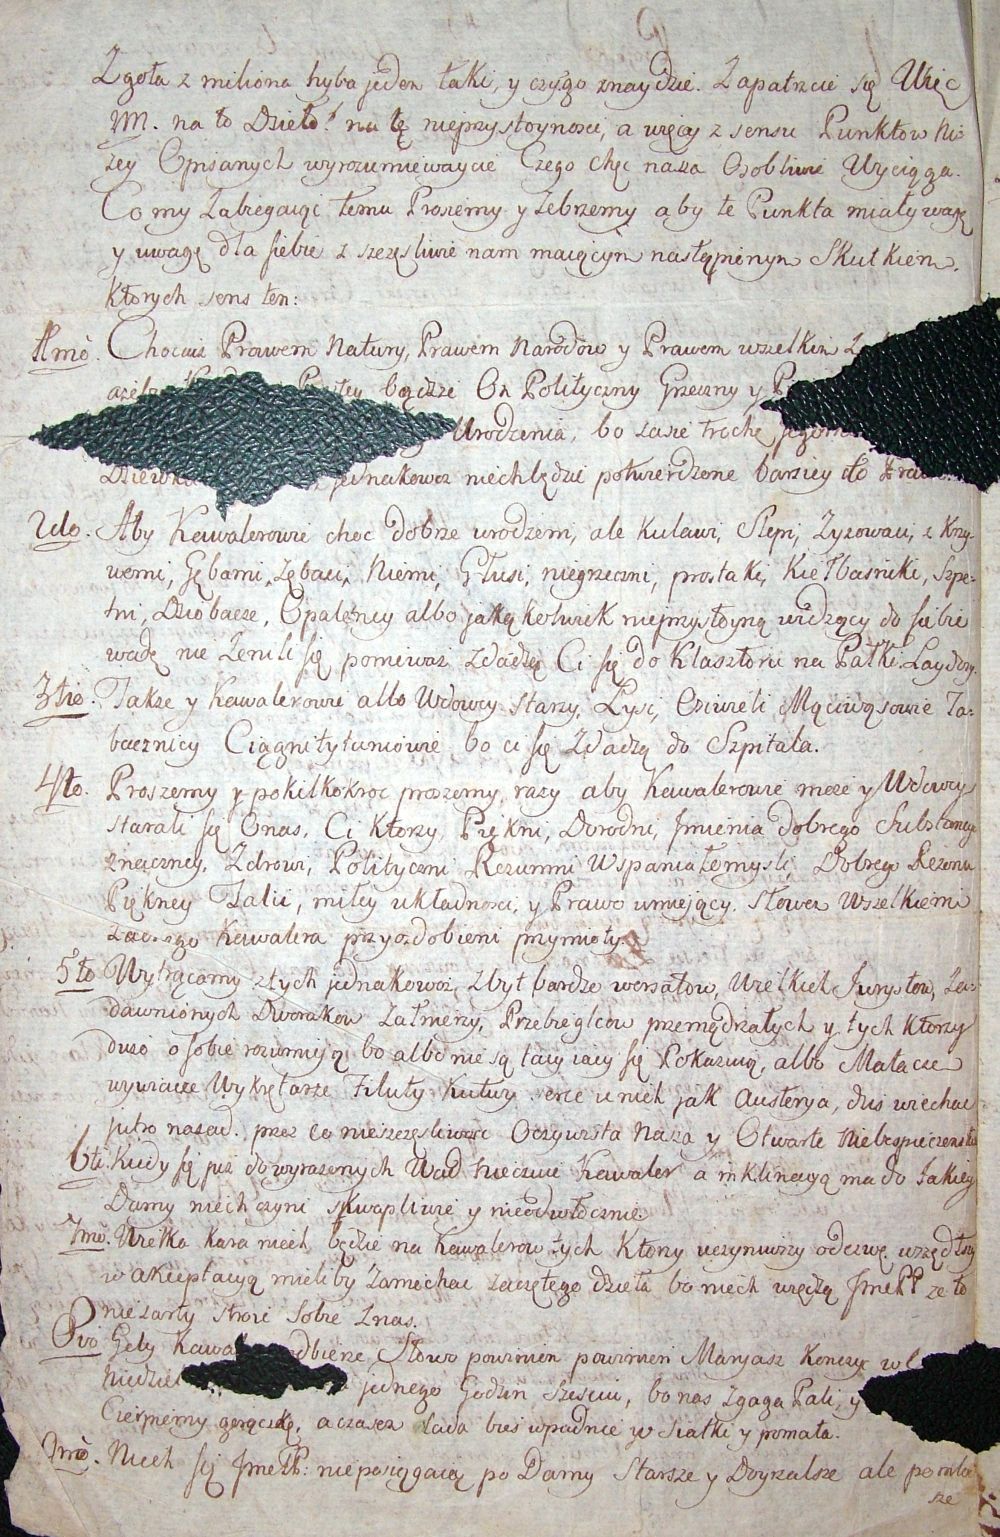 Zgoła z miliona hyba jeden taki, y czyzgo znaydzie. Zapatrzcie się Więc
na to Dzieło! na tę nieprzystoynosci, a więcy z sensu Punktow Ni-
zey Opisanych wyrozumiewaycie Czego chęc nasza Osobliwie Wyciąga.
Co my Zabiegaiąc temu Prosiemy y Zebrzemy aby te Punkta miały wagę
y uwagę dla siebie z szczęsliwie nam maiącym nastąpienym Skutkiem.
Ktorych sens ten:
1mo. Chociaz Prawem Natury, Prawem Narodow y Prawem wszelkim
będzie On Polityczny Grzeczny y
Urodzenia, bo zasie trochę
jednakowoz niech będzie potwierdzone barziey
2do. Aby Kawalerowie choc dobrze urodzeni, ale Kulawi, Slepi, Zyzowaci, z Krzy-
wemi, Gębami, Zębaci, Niemi, Głusi, niegrzeczni, prostaki, Kiełbasnicki, Szpe-
tni, Dziobacze, Opalency albo jakąkolwiek nieprzystoyną widzący do siebie
wadę nie Zenili się poniewaz Zdadzą Ci się do Klasztoru na Patki
3tio. Takze y Kawalerowie albo Wdowcy Starzy, Łysi, Osiwieli Mąciwąsowie Ta-
bacznicy Ciągnitytuniowie bo ci się Zdadzą do Szpitala.
4to. Proszemy y pokilkokroc proszemy razy aby Kawalerowie moze y Wdowcy
starali się Onas, Ci Ktorzy Piękni, Dorodni, Jmienia dobrego Substancyi
znaczney, Zdrowi, Polityczni Rozumni Wspaniałemysli, Dobrego Rezonu
Piękney Talii, miłey układnosci, y Prawo umiejący. Słowem Wszelkiemi
Zacnego Kawalera przyozdobieni przymioty.
5to Wytrącamy złych jednakowoz, Zbyt bardzo wersatow, Wielkich Jurystow, Za-
dawnionych Dworakow Zalmerzy, Przebieglcow przemądrzałych y tych Ktorzy
duzo o sobie rozumieją bo albo nie są tacy iacy się Pokazuią, albo Matacze
wywiacze Wykrętarze Filuty Kutwy serce unich jak Austerya, dzis wiechac
jutro nazad. przez co nieszczęsliwosc Oczywista Nasza y Otwarte Niebespieczenstwo
6te. Kiedy się juz do wyrazonych Wad nieczuie Kawaler a inklinacyą ma do Jakiey
Damy niech czyni skwapliwie y nieodwłocznie.
7mo. Wielka Kara niech będzie na Kawalerow tych Ktorzy uczyniwszy odezwę wszędłszy
w akceptacyą mieliby Zaniechac zaczętego dzieła bo niech wiedzą JmciPP ze to
niezarty stroic Sobie Znas.
8vo Gdy Kawa dbierze Słowo powinien powinien Maryasz Konczyc w
Niedziel jednego Godzin Szesciu, bo nas Zgaga Pali, y
Cierpiemy gorączkę, a czasem Lada bies wpadnie w Siatki y pomata.
9no. Niech się JmciPP: nieposięgaią po Damy Starsze y Doyrzalsze ale po młod
sze